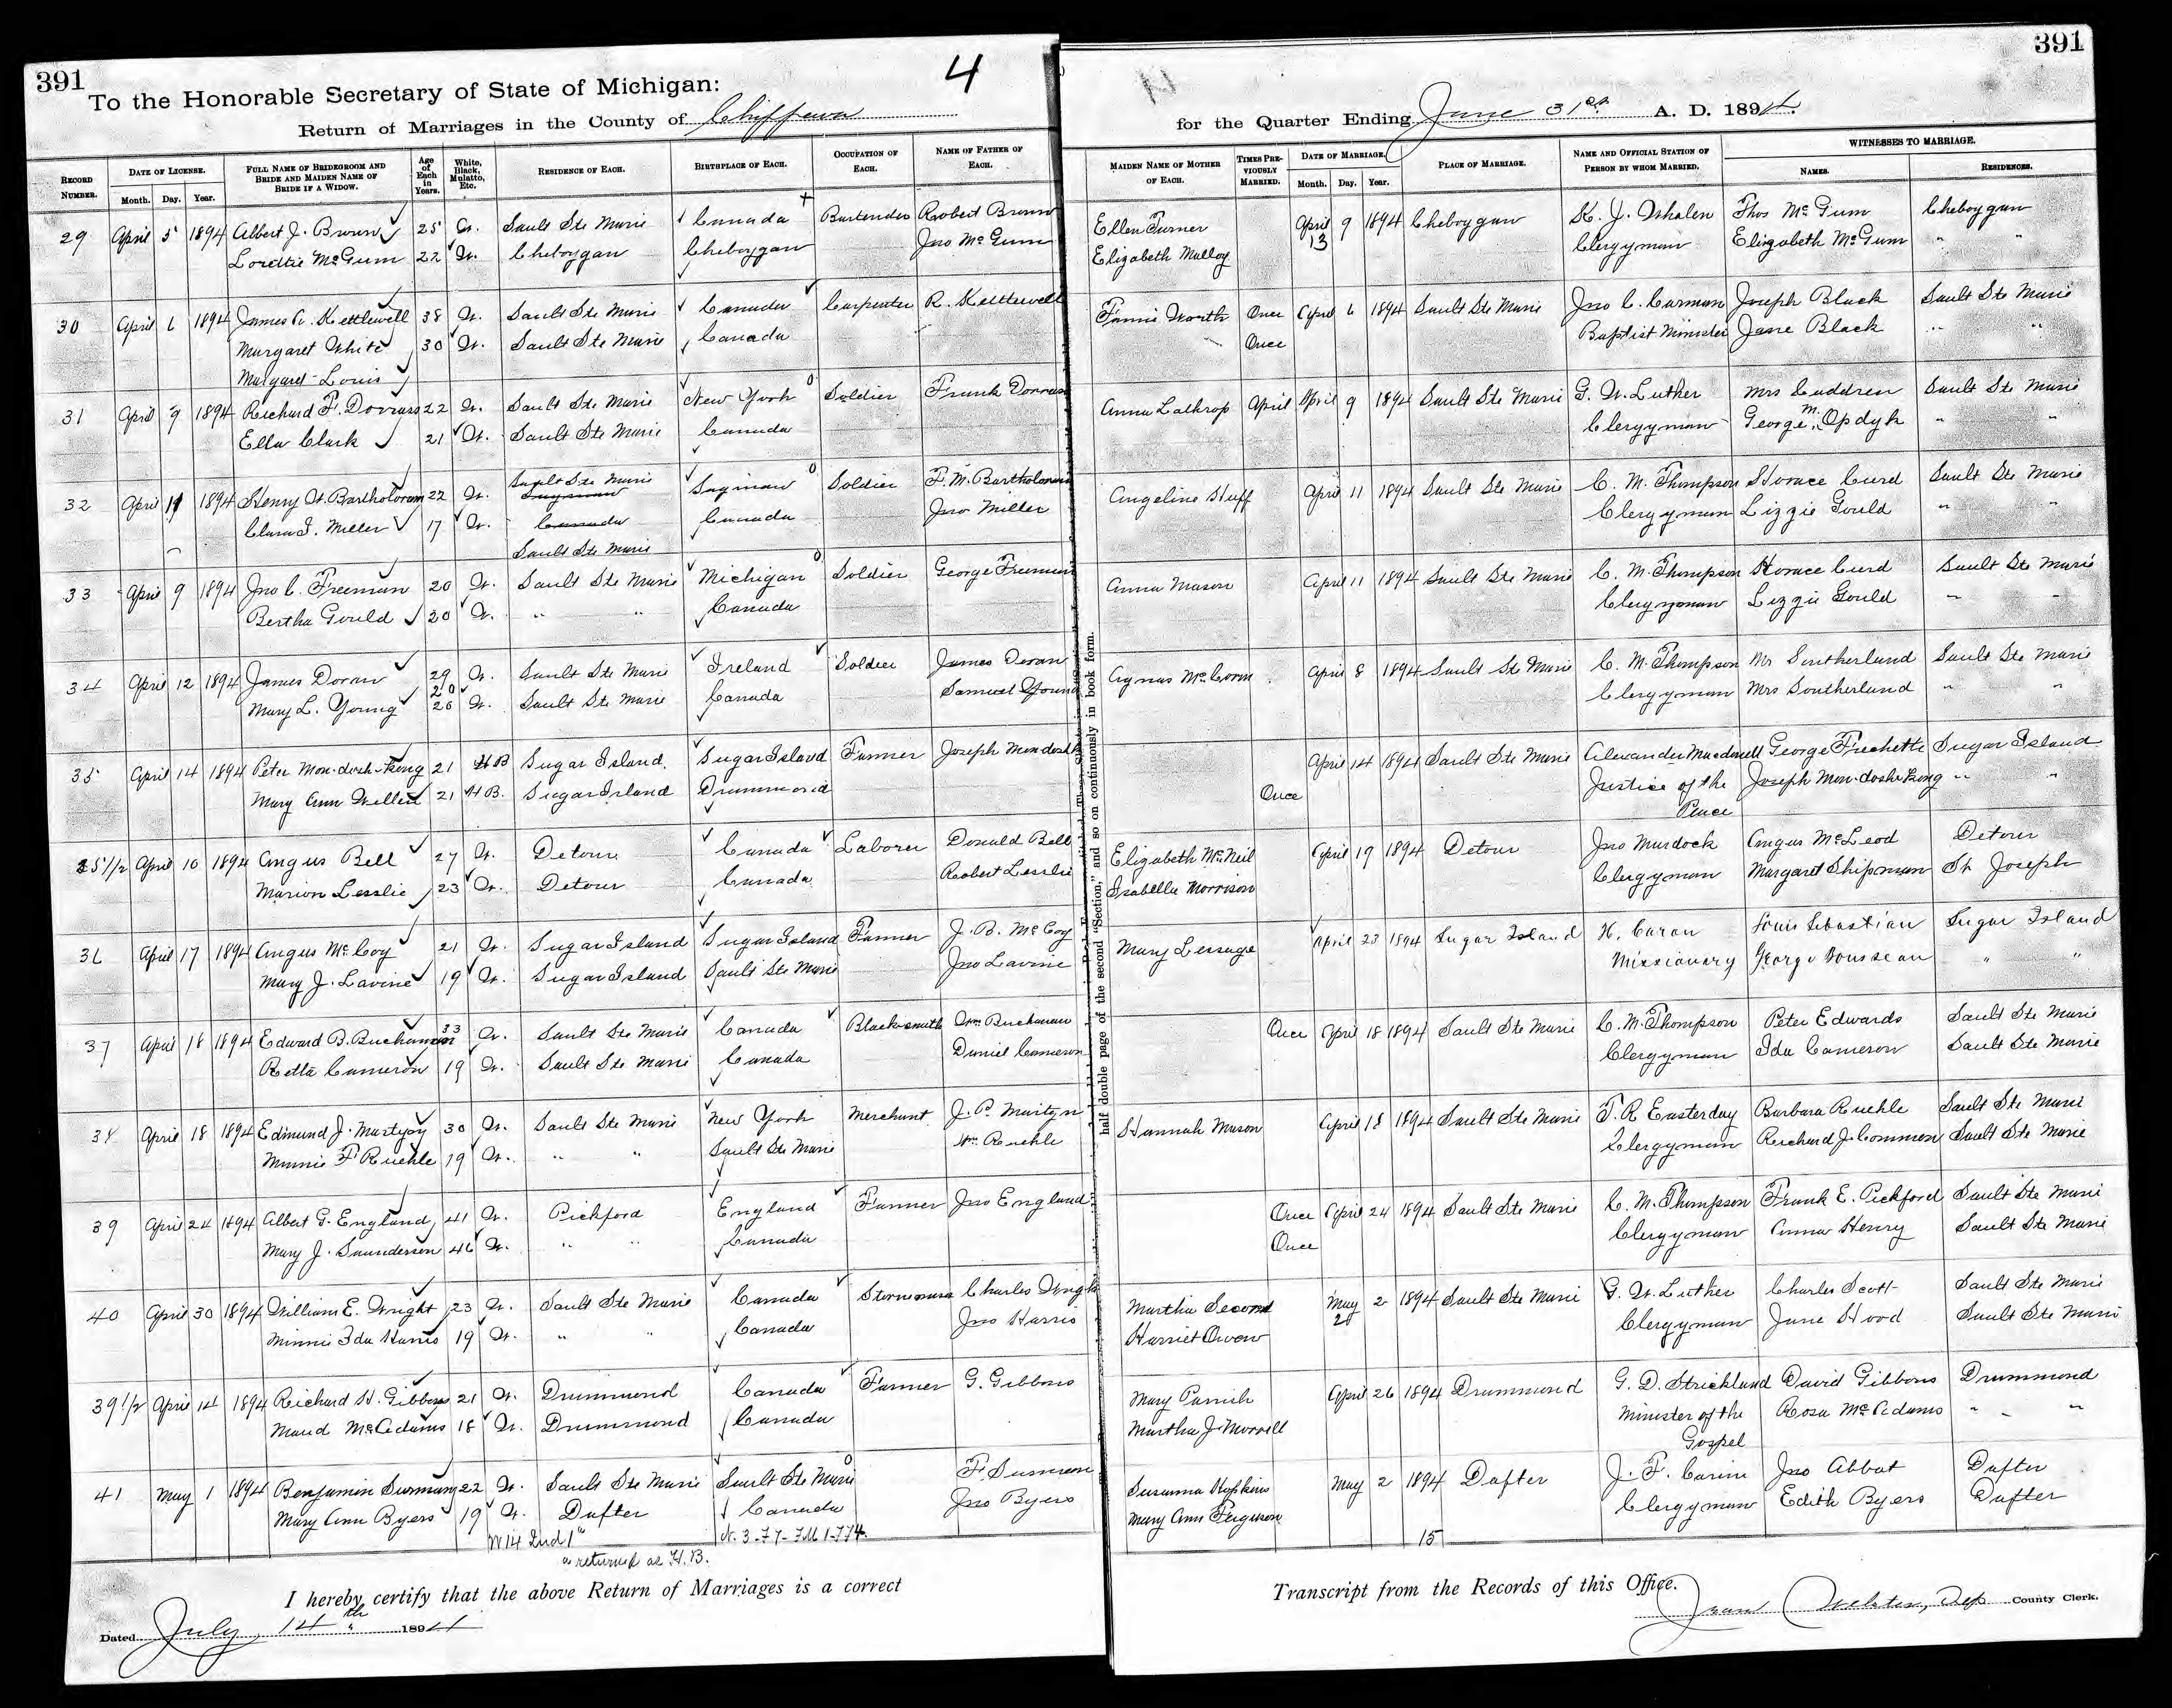 391
4
To the Honorable Secretary of State of Michigan:
Return of Marriages in the County of Chippewa
RECORD NUMBER. DATE OF LICENSE. Month. Day. Year. FULL NAME OF BRIDEGROOM AND BRIDE AND MAIDEN NAME OF BRIDE IF A WIDOW. Age of Each in Years. White, Black, Mulatto, Etc. RESIDENCE OF EACH. BIRTHPLACE OF EACH. OCCUPATION OF EACH. NAME OF FATHER OF EACH.
29 April 5 1894 Albert J. Brown 25 W. Sault Ste Marie Canada Bartender Robert Brown
Lordtie McGum 22 W. Cheboygan Cheboygan Jno McGum
30 April 6 1894 James A. Kettlewell 38 W. Sault Ste Marie Canada Carpenter R. Kettlewell
Margaret White 30 W. Sault Ste Marie Canada
Margaret Louis
31 April 9 1894 Richard F. Dorrass 22 W. Sault Ste Marie New York Soldier Frank Dorrass
Ella Clark 21 W. Sault Ste Marie Canada
Sault Ste Marie
32 April 11 1894 Henry W. Bartholomew 22 W. Saginaw Saginaw Soldier F. M. Bartholomew
Clara I. Miller 17 W. Canada Canada Jno Miller
Sault Ste Marie
33 April 9 1894 Jno C. Freeman 20 W. Sault Ste Marie Michigan Soldier George Freeman
Bertha Gould 20 W. " " Canada
34 April 12 1894 James Doran 29 W. Sault Ste Marie Ireland Soldier James Doran
20
Mary L. Young 26 W. Sault Ste Marie Canada Samuel Young
35 April 14 1894 Peter Mon-dosh-king 21 H B Sugar Island. Sugar Island Farmer Joseph Mondosh
Mary Ann Willett 21 H B. Sugar Island Drummond
35 1/2 April 10 1894 Angus Bell 27 W. Detour Canada Laborer Donald Bell
Marion Lesslie 23 W. Detour Canada Robert Lesslie
36 April 17 1894 Angus McCoy 21 W. Sugar Island Sugar Island Farmer J. B. McCoy
Mary J. Lavine 19 W. Sugar Island Sault Ste Marie Jno Lavine
37 April 18 1894 Edward B. Buchanan 33 W. Sault Ste Marie Canada Blacksmith Wm Buchanan
Retta Cameron 19 W. Sault Ste Marie Canada Daniel Cameron
38 April 18 1894 Edmund J. Martyn 30 W. Sault Ste Marie New York Merchant J. P. Martyn
Minnie F Ruehle 19 W. " " Sault Ste Marie Wm Ruehle
39 April 24 1894 Albert G. England 41 W. Pickford England Farmer Jno England
Mary J. Saunderson 46 W. " " Canada
40 April 30 1894 William E. Wright 23 W. Sault Ste Marie Canada Charles Wright
Minnie Ida Harris 19 W. " " Canada Jno Harris
39 1/2 April 14 1894 Richard H. Gibbons 21 W. Drummond Canada Farmer G. Gibbons
Maud McAdams 18 W. Drummond Canada
41 May 1 1894 Benjamin 22 W. Sault Ste Marie Sault Ste Marie
Mary Ann Byers 19 W. Dafter Canada Jno Byers
W14 2nd 1"
" returned as H.B.
I hereby certify that the above Return of Marriages is a correct
Dated July 14th 1894
391
for the Quarter Ending June 31st A. D. 1894.
MAIDEN NAME OF MOTHER OF EACH. TIMES PREVIOUSLY MARRIED. DATE OF MARRIAGE. Month. Day. Year. PLACE OF MARRIAGE. NAME AND OFFICIAL STATION OF PERSON BY WHOM MARRIED. WITNESSES TO MARRIAGE. NAMES. RESIDENCES.
Ellen Turner April 9 1894 Cheboygan K. J. Whalen Thos McGum Cheboygan
13
Elizabeth Mulloy Clergyman Elizabeth McGum " "
Fannie Worth Once April 6 1894 Sault Ste Marie Jno C. Carman Joseph Black Sault Ste Marie
Once Baptist Minister Jane Black " "
Anna Lathrop April April 9 1894 Sault Ste Marie G. W. Luther Mrs Caddren Sault Ste Marie
Clergyman George M. Opdyk " "
Angeline Huff April 11 1894 Sault Ste Marie C. M. Thompson Horace Curd Sault Ste Marie
Clergyman Lizzie Gould " "
Anna Mason April 11 1894 Sault Ste Marie C. M. Thompson Horace Curd Sault Ste Marie
Clergyman Lizzie Gould " "
Agnas McCorm April 8 1894 Sault Ste Marie C. M. Thompson Mr Southerland Sault Ste Marie
Clergyman Mrs Southerland " "
April 14 1894 Sault Ste Marie Alexander Macdonell George Frechette Sugar Island
Once Justice of the Joseph Mon-doshe-king " "
Peace
Elizabeth McNeil April 19 1894 Detour Jno Murdock Angus McLeod Detour
Isabella Morrison Clergyman Margaret Shipman St Joseph
Mary Lessage April 23 1894 Sugar Island N. Caron Louis Sebastian Sugar Island
Missionary George Rousseau " "
Once April 18 1894 Sault Ste Marie C. M. Thompson Peter Edwards Sault Ste Marie
Clergyman Ida Cameron Sault Ste Marie
Hannah Mason April 18 1894 Sault Ste Marie T. R. Easterday Barbara Ruehle Sault Ste Marie
Clergyman Richard J. Common Sault Ste Marie
Once April 24 1894 Sault Ste Marie C. M. Thompson Frank E. Pickford Sault Ste Marie
Once Clergyman Anna Henry Sault Ste Marie
Martha Second May 2 1894 Sault Ste Marie G. W. Luther Charles Scott Sault Ste Marie
Harriet Owen Clergyman Jane Hood Sault Ste Marie
Mary Parrish April 26 1894 Drummond G. D. Strickland David Gibbons Drummond
Martha J. Morrell Minister of the Rosa McAdams " "
Gospel
Susanna Hopkins May 2 1894 Dafter J. F. Jno Abbot Dafter
Mary Ann Ferguson Clergyman Edith Byers Dafter
15
half double page of the second "Section," and so on continuously in book form.
Transcript from the Records of this Office.
Webster, Dep County Clerk.